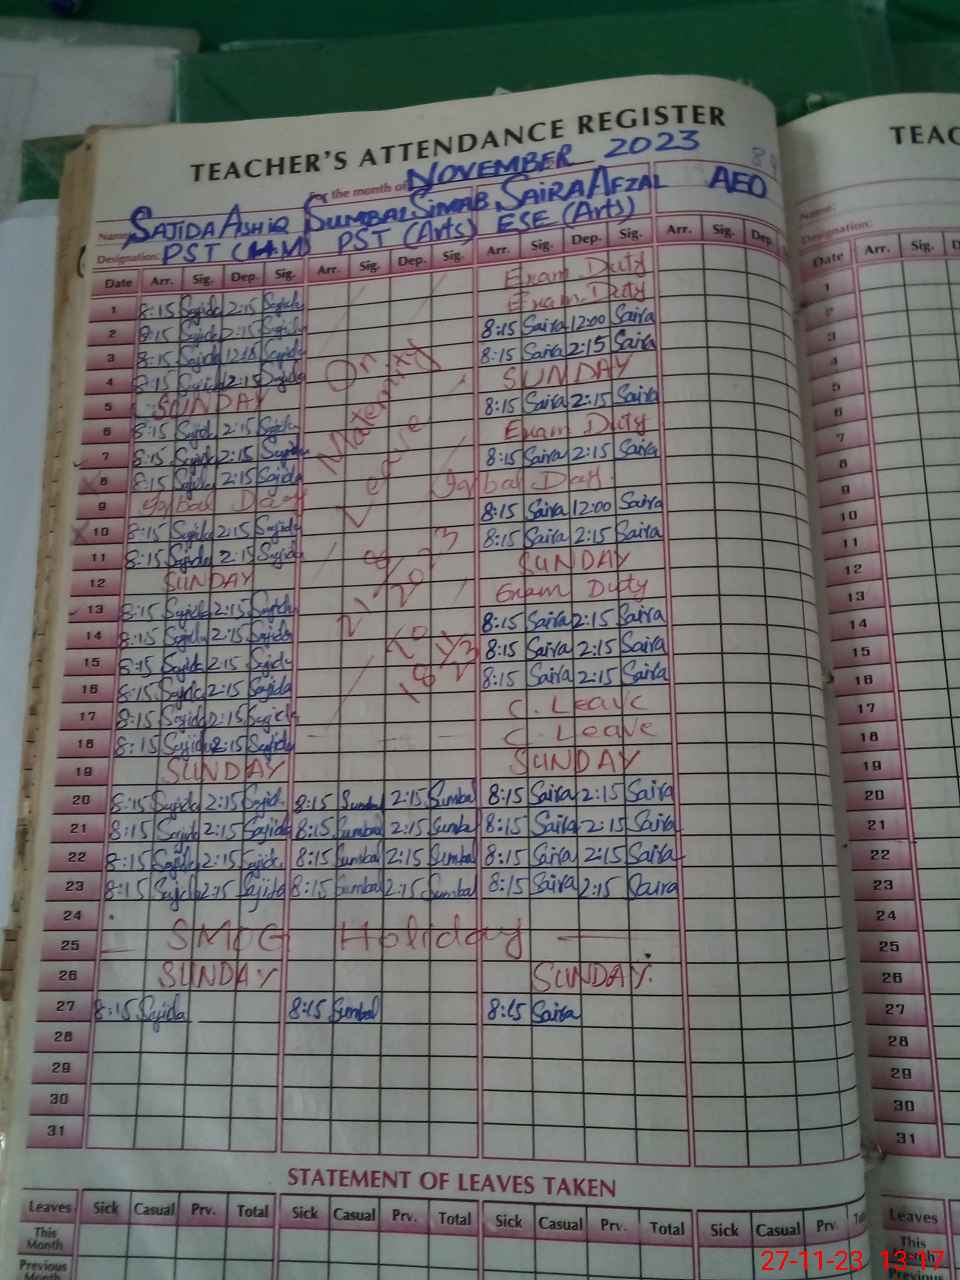 TEACHER'S ATTENDANCE REGISTER
TEAC
For the month of NOVEMBER 2023
Name: SAJIDA ASHIQ SUMBAL SIMAB SAIRA AFZAL AEO
Name:
Designation: PST PST (Arts) ESE (Arts)
Designation:
Date Arr. Sig. Dep. Sig. Arr. Sig. Dep. Sig. Arr. Sig. Dep. Sig. Arr. Sig. Dep. Sig.
Date Arr. Sig.
Exam Duty
1 8:15 Sajida 2:15 Sajida Exam Duty
2 8:15 Sajida 2:15 Sajida 8:15 Saira 12:00 Saira
3 8:15 Sajida Sajida 8:15 Saira 2:15 Saira
4 8:15 Sajida 2:15 Sajida SUNDAY
5 SUNDAY 8:15 Saira 2:15 Saira
6 8:15 Sajida 2:15 Sajida Exam Duty
7 8:15 Sajida 2:15 Sajida 8:15 Saira 2:15 Saira
8 8:15 Sajida 2:15 Sajida Iqbal Day
9 Iqbal Day 8:15 Saira 12:00 Saira
10 8:15 Sajida 2:15 Sajida 8:15 Saira 2:15 Saira
11 8:15 Sajida 2:15 Sajida SUNDAY
12 SUNDAY Exam Duty
13 8:15 Sajida 2:15 Sajida 8:15 Saira 2:15 Saira
14 8:15 Sajida 2:15 Sajida 8:15 Saira 2:15 Saira
15 8:15 Sajida 2:15 Sajida 8:15 Saira 2:15 Saira
16 8:15 Sajida 2:15 Sajida C. Leave
17 8:15 Sajida 2:15 Sajida C. Leave
18 8:15 Sajida 2:15 Sajida SUNDAY
On
Maternity
Leave
2023
To
19 SUNDAY
20 8:15 Sajida 2:15 Sajida 8:15 Sumbal 2:15 Sumbal 8:15 Saira 2:15 Saira
21 8:15 Sajida 2:15 Sajida 8:15 Sumbal 2:15 Sumbal 8:15 Saira 2:15 Saira
22 8:15 Sajida 2:15 Sajida 8:15 Sumbal 2:15 Sumbal 8:15 Saira 2:15 Saira
23 8:15 Sajida 2:15 Sajida 8:15 Sumbal 2:15 Sumbal 8:15 Saira 2:15 Saira
24
25 SMOG Holiday
26 SUNDAY SUNDAY.
27 8:15 Sajida 8:15 Sumbal 8:15 Saira
28
29
30
31
1
2
3
4
5
6
7
8
9
10
11
12
13
14
15
16
17
18
19
20
21
22
23
24
25
26
27
28
29
30
31
STATEMENT OF LEAVES TAKEN
Leaves Sick Casual Prv. Total Sick Casual Prv. Total Sick Casual Prv. Total Sick Casual Prv.
Leaves
This Month
This
Previous Month
Previous
27-11-23 13:17